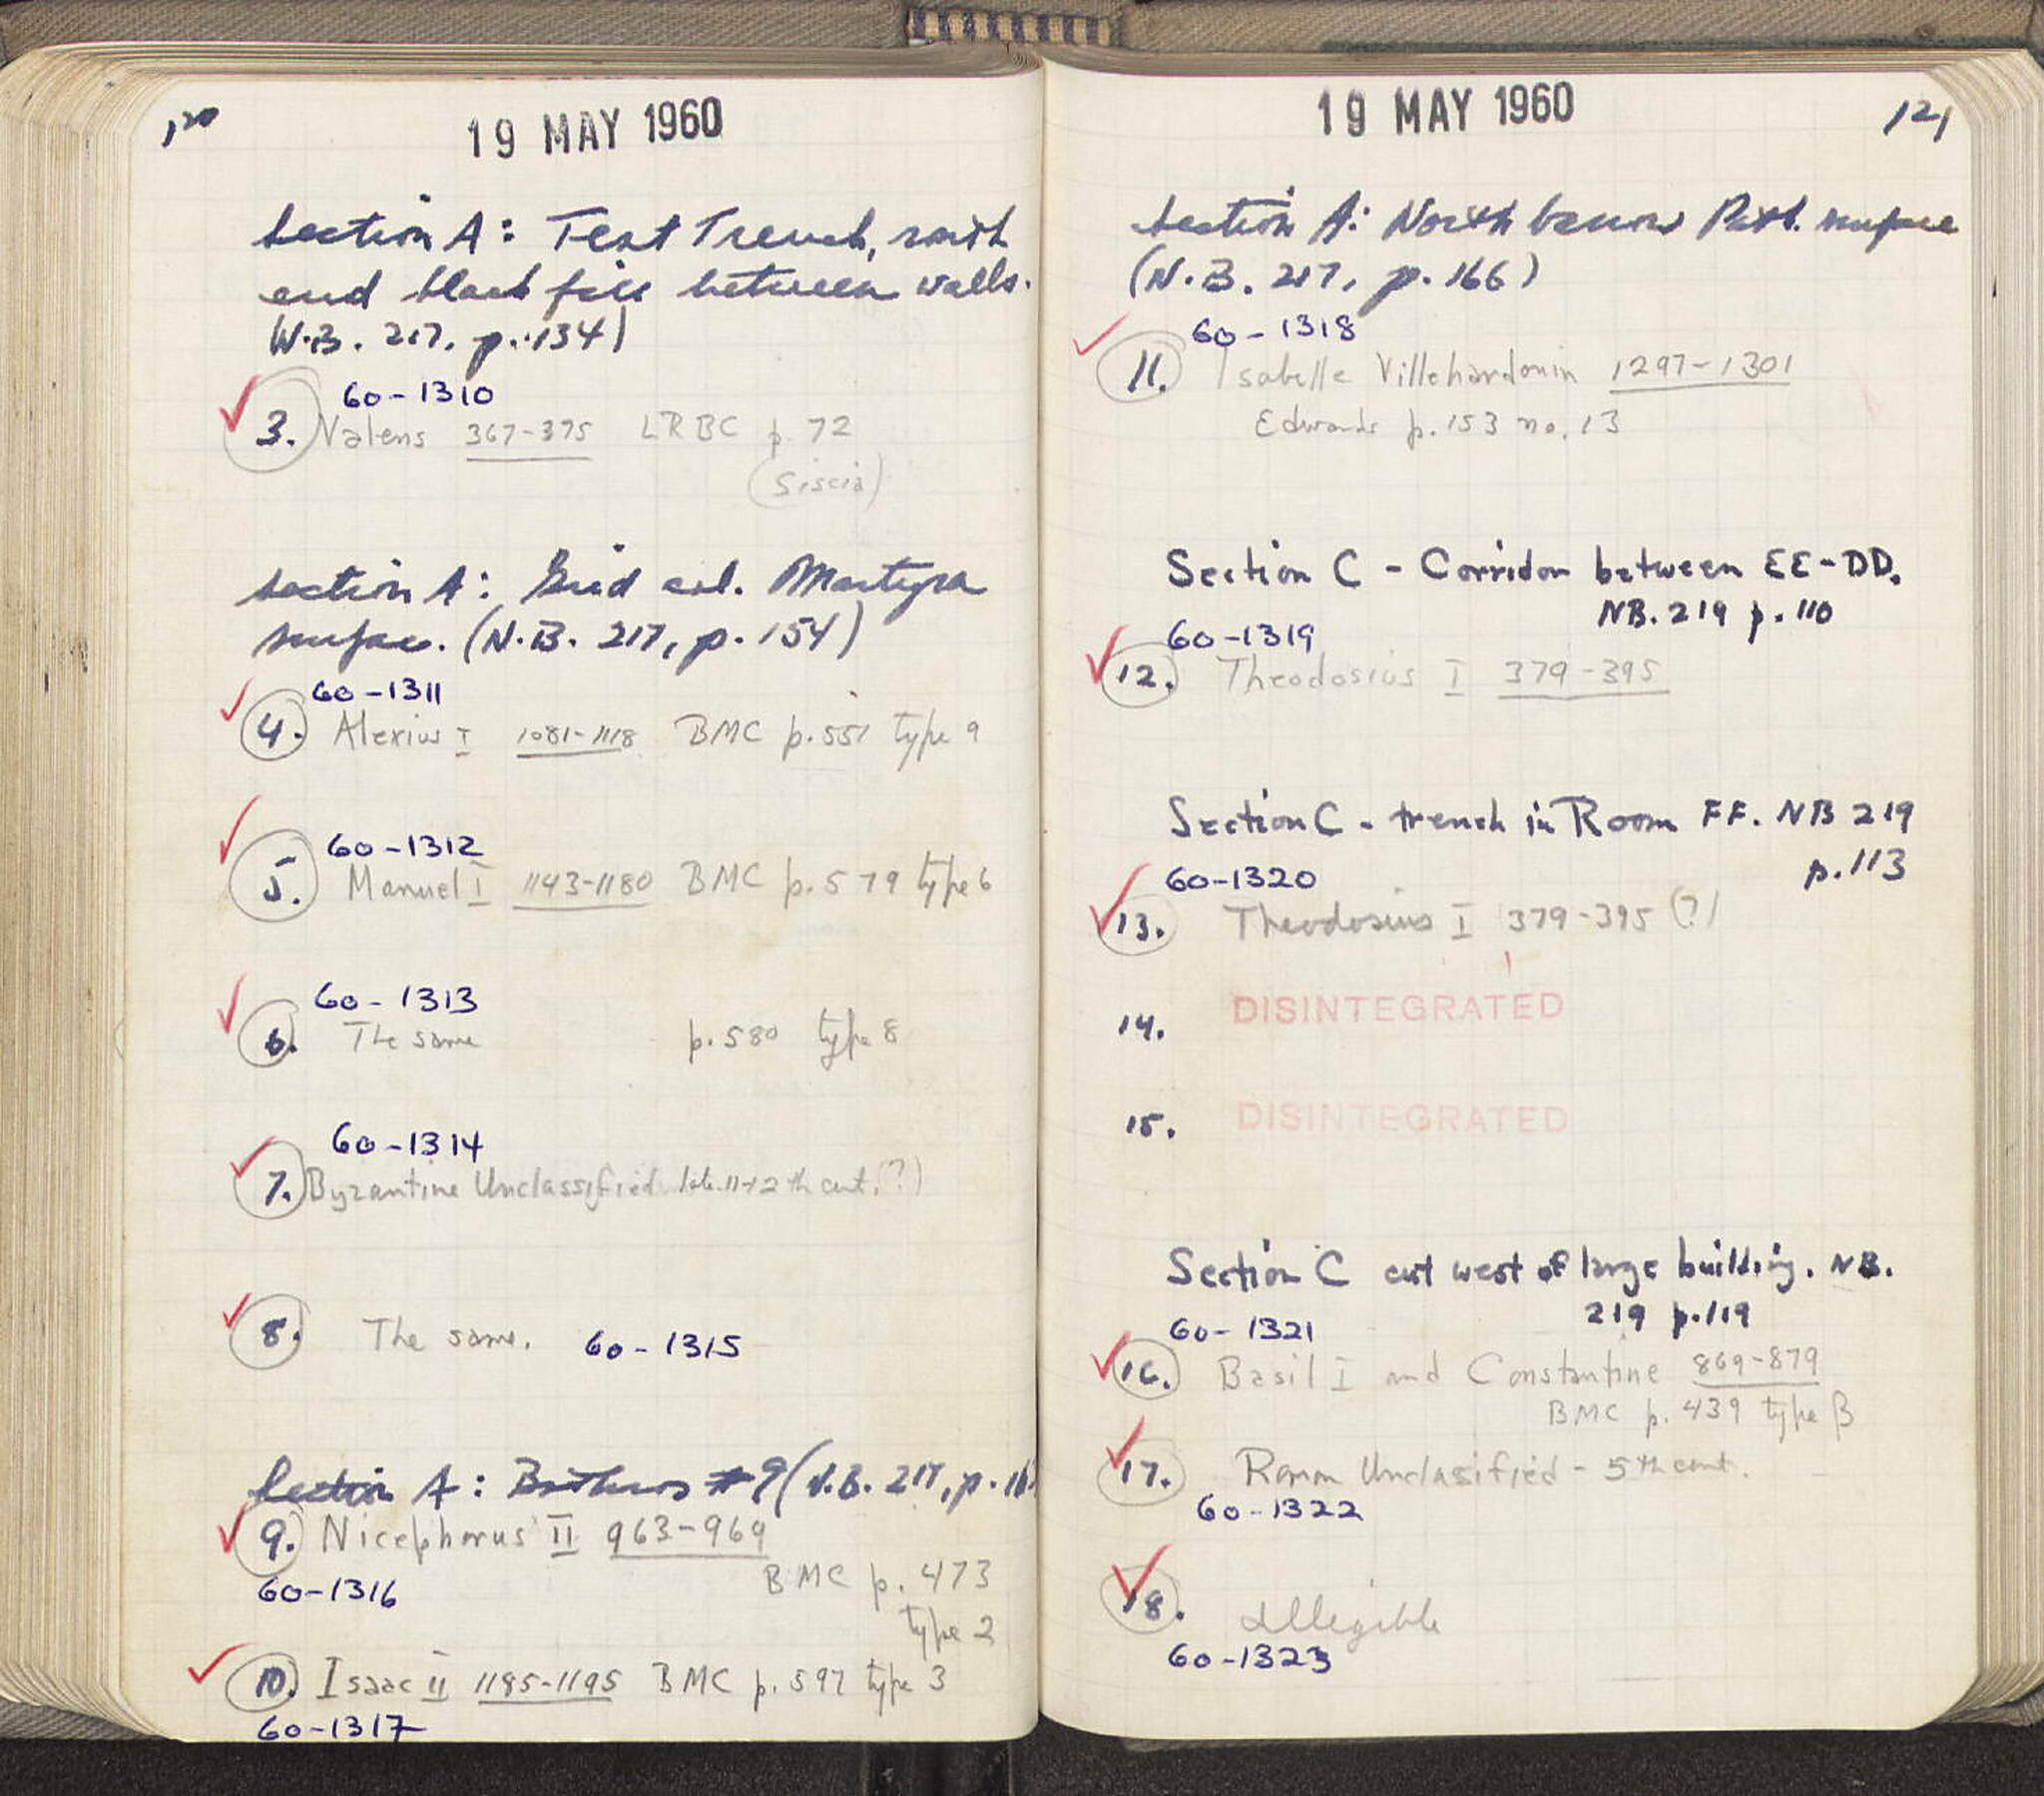 120
19 MAY 1960
Section A: Test Trench, south
end black fill between walls.
N.B. 217, p. 134)
60-1310
3. Valens 367-375 LRBC p. 72
(Siscia)
Section A: Grid col. Martyra
surface. (N.B. 217, p. 154)
60-1311
4. Alexius I 1081-1118 BMC p.551 type 9
60-1312
5. Manuel I 1143-1180 BMC p. 579 type 6
60-1313
6. The same p.580 type 8
60-1314
7. Byzantine Unclassified late 11-12th cent. (?)
8. The same. 60-1315
Section A: Bothros #9 (N.B. 217, p. 16
9. Nicephorus II 963-969
60-1316
BMC p. 473
type 2
10. Isaac II 1185-1195 BMC p. 597 type 3
60-1317
19 MAY 1960
121
Section A: North surface
(N.B. 217, p. 166)
60-1318
11. Isabelle Villehardouin 1297-1301
Edwards p. 153 no. 13
Section C - Corridor between EE-DD.
NB. 219 p. 110
60-1319
12. Theodosius I 379-395
Section C - trench in Room FF. NB 219
p. 113
60-1320
13. Theodosius I 379-395 (?)
14. DISINTEGRATED
15. DISINTEGRATED
Section C cut west of large building. NB.
219 p. 119
60-1321
16. Basil I and Constantine 869-879
BMC p. 439 type B
17. Roman Unclassified - 5th cent.
60-1322
18. Illegible
60-1323